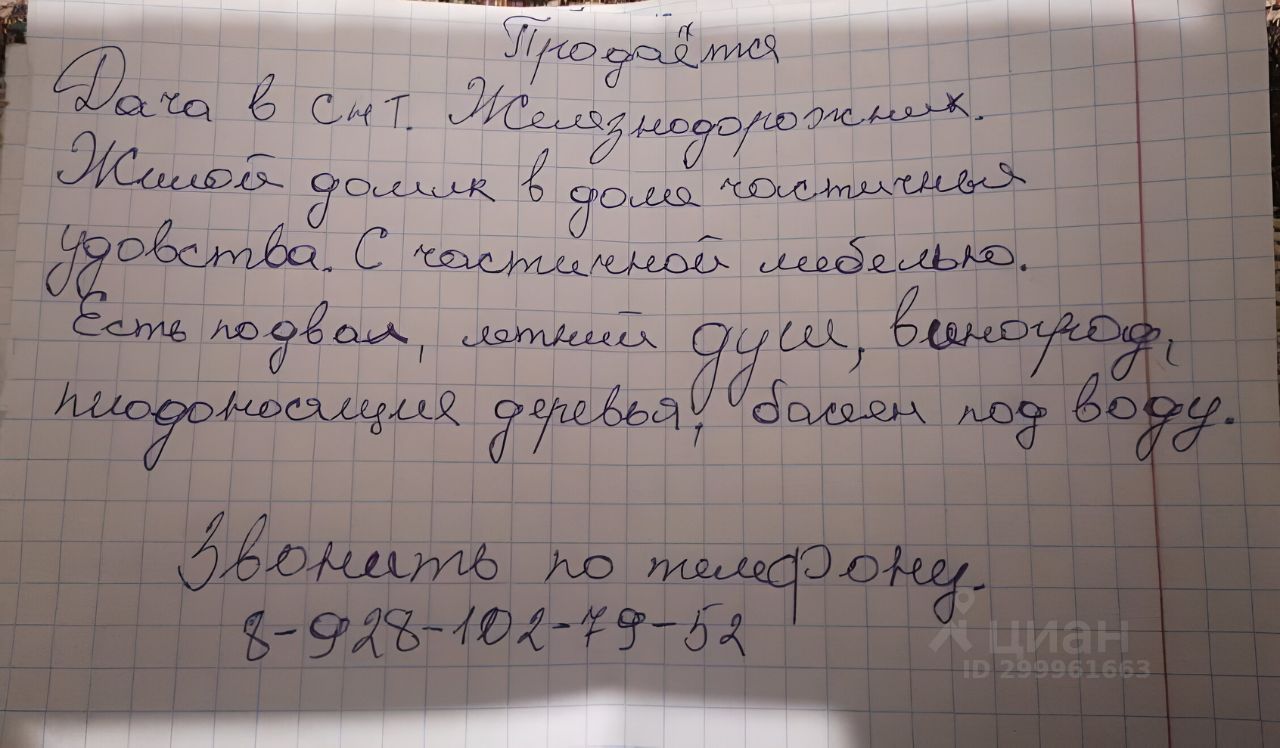 Продаётся
Дача в снт. Железнодорожник.
Жилой домик в доме частичныя
удовства. С частичной мебелью.
Есть подвал, летний душ, виноград,
плодоносящие деревья, басеен под воду.
Звонить по телефону.
8-928-102-79-52
циан
ID 299961663